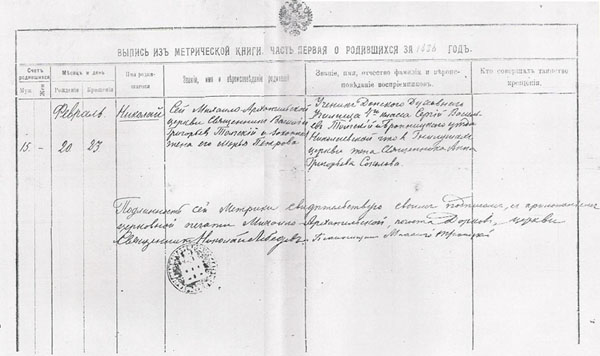 ВЫПИСЬ ИЗЪ МЕТРИЧЕСКОЙ КНИГИ, ЧАСТЬ ПЕРВАЯ О РОДИВШИХСЯ ЗА 1886 ГОДЪ.
Счетъ родившихся
Муж.
Жен.
Мѣсяцъ и день
Рожденія
Крещенія
Имя родившагося
Званіе, имя и вѣроисповѣданіе родителей
Званіе, имя, отчество фамилія и вѣроисповѣданіе воспріемниковъ.
Кто совершалъ таинство крещенія.
Февраль
15
20
27
Николай
Сей Михаило-Архангельской
церкви Священникъ Василій
Григорьевъ и законная
жена его Марья Петрова
Ученикъ Донского Духовнаго
Училища класса Сергій Василь
евъ Бронницкаго уѣзда
Николаевской что въ
церкви жена Священника Анна
Григорьева Соколова
Подлинность сей Метрики свидѣтельствую своимъ подписомъ, съ приложеніемъ
церковной печати Михаило-Архангельской, церкви
Священникъ Николай Лебедевъ.